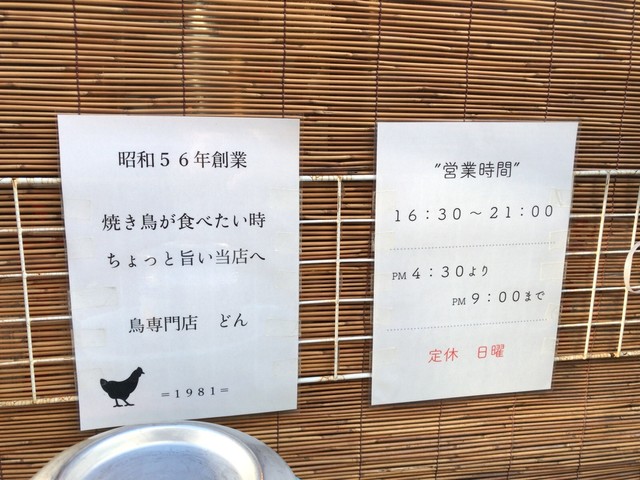 昭和５６年創業
焼き鳥が食べたい時
ちょっと旨い当店へ
鳥専門店　どん
＝１９８１＝
”営業時間”
１６：３０～２１：００
PM ４：３０より
PM ９：００まで
定休　日曜